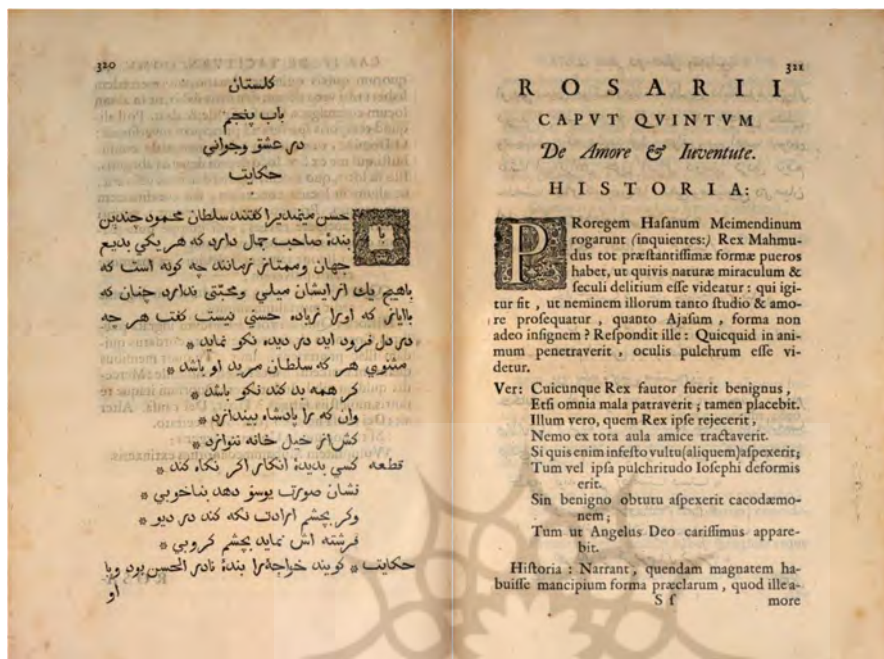 320
کلستان
باب پنجم
در عشق وجواني
حکایت
با حسن میمندیرا کفتند سلطان محمود چندین
بندهٔ صاحب جمال دارد که هر یکي بدیع
جهان وممتاز زمانند چه کونه است که
باهیچ یك از ایشان میلي ومحبتي ندارد چنان که
باایاز که اورا زیاده حسني نیست کفت هر چه
در دل فرود اید در دیده نکو نماید *
مثنوي هر که سلطان مرید او باشد *
کر همه بد کند نکو باشد *
وان که را پادشاه بیندازد *
کش از خیل خانه ننوازد *
قطعه کسي بدیدهٔ انکار اکر نکاه کند *
نشان صورت یوسو دهد بناخوبي *
وکر بچشم ارادت نکه کند در دیو *
فرشته اش نماید بچشم کروبي *
حکایت * کویند خواجهٔرا بندهٔ نادر الحسن بود وبا
او
321
ROSARII
CAPVT QVINTVM
De Amore & Iuventute.
HISTORIA:
PRoregem Hasanum Meimendinum
rogarunt (inquientes:) Rex Mahmu-
dus tot præstantissimæ formæ pueros
habet, ut quivis naturæ miraculum &
seculi delitium esse videatur : qui igi-
tur fit , ut neminem illorum tanto studio & amo-
re prosequatur , quanto Ajasum , forma non
adeo insignem ? Respondit ille : Quicquid in ani-
mum penetraverit , oculis pulchrum esse vi-
detur.
Ver: Cuicunque Rex fautor fuerit benignus ,
Etsi omnia mala patraverit ; tamen placebit.
Illum vero, quem Rex ipse rejecerit ,
Nemo ex tota aula amice tractaverit.
Si quis enim infesto vultu(aliquem)aspexerit;
Tum vel ipsa pulchritudo Iosephi deformis
erit.
Sin benigno obtutu aspexerit cacodæmo-
nem ;
Tum ut Angelus Deo carissimus appare-
bit.
Historia : Narrant , quendam magnatem ha-
buisse mancipium forma præclarum , quod ille a-
S f more